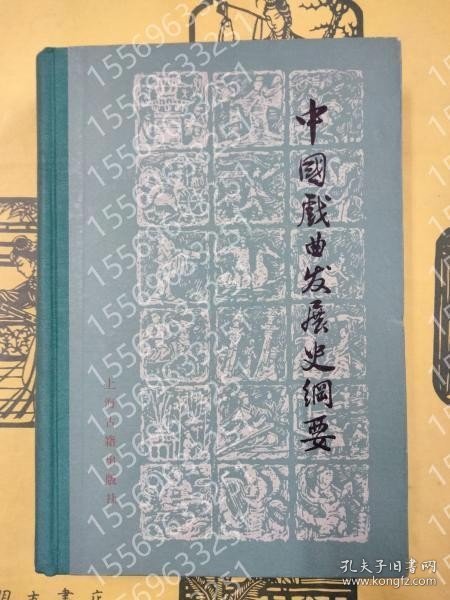 中國戲曲发展史綱要
上海古籍出版社
明古書店
15569633251
孔夫子旧书网
www.kongfz.com